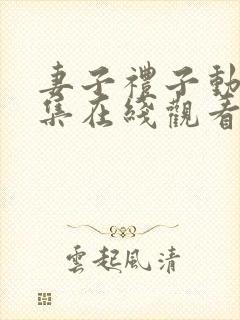 妻子禮子動
集在綫觀看
雲起風清